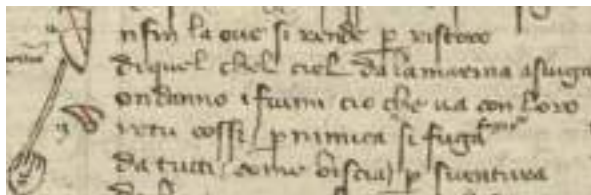 nfin la oue si rende p ristoro
di quel chel ciel dalamarina asiuga
ondanno i fiumi cio che ua con loro
uertu cossi p nimica si fuga
da tutti come biscia p suentura